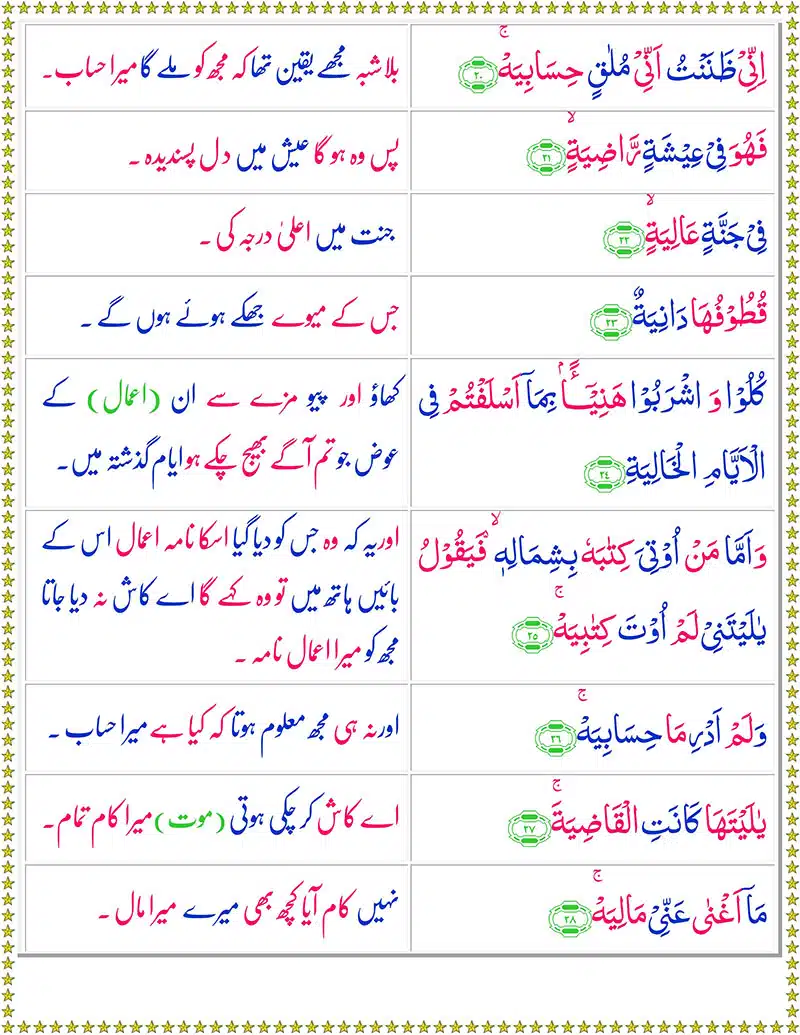 اِنِّیْ ظَنَنْتُ اَنِّیْ مُلٰقٍ حِسَابِیَهْ ۚ ﴿۲۰﴾
بلاشبہ مجھے یقین تھا کہ مجھ کو ملے گا میرا حساب۔
فَهُوَ فِیْ عِیْشَةٍ رَّاضِیَةٍ ۙ ﴿۲۱﴾
پس وہ ہو گا عیش میں دل پسندیدہ ۔
فِیْ جَنَّةٍ عَالِیَةٍ ۙ ﴿۲۲﴾
جنت میں اعلیٰ درجہ کی ۔
قُطُوْفُهَا دَانِیَةٌ ﴿۲۳﴾
جس کے میوے جھکے ہوئے ہوں گے ۔
كُلُوْا وَ اشْرَبُوْا هَنِیْٓــًٔۢا بِمَاۤ اَسْلَفْتُمْ فِی
الْاَیَّامِ الْخَالِیَةِ ﴿۲۴﴾
کھاؤ اور پیو مزے سے ان (اعمال) کے
عوض جو تم آگے بھیج چکے ہو ایام گذشتہ میں۔
وَ اَمَّا مَنْ اُوْتِیَ كِتٰبَهٗ بِشِمَالِهٖ ۙ۬ فَیَقُوْلُ
یٰلَیْتَنِیْ لَمْ اُوْتَ كِتٰبِیَهْ ۚ ﴿۲۵﴾
اور یہ کہ وہ جس کو دیا گیا اسکا نامہ اعمال اس کے
بائیں ہاتھ میں تو وہ کہے گا اے کاش نہ دیا جاتا
مجھ کو میرا اعمال نامہ ۔
وَ لَمْ اَدْرِ مَا حِسَابِیَهْ ۚ ﴿۲۶﴾
اور نہ ہی مجھ معلوم ہوتا کہ کیا ہے میرا حساب ۔
یٰلَیْتَهَا كَانَتِ الْقَاضِیَةَ ۚ ﴿۲۷﴾
اے کاش کر چکی ہوتی (موت) میرا کام تمام۔
مَاۤ اَغْنٰی عَنِّیْ مَالِیَهْ ۚ ﴿۲۸﴾
نہیں کام آیا کچھ بھی میرے میرا مال ۔